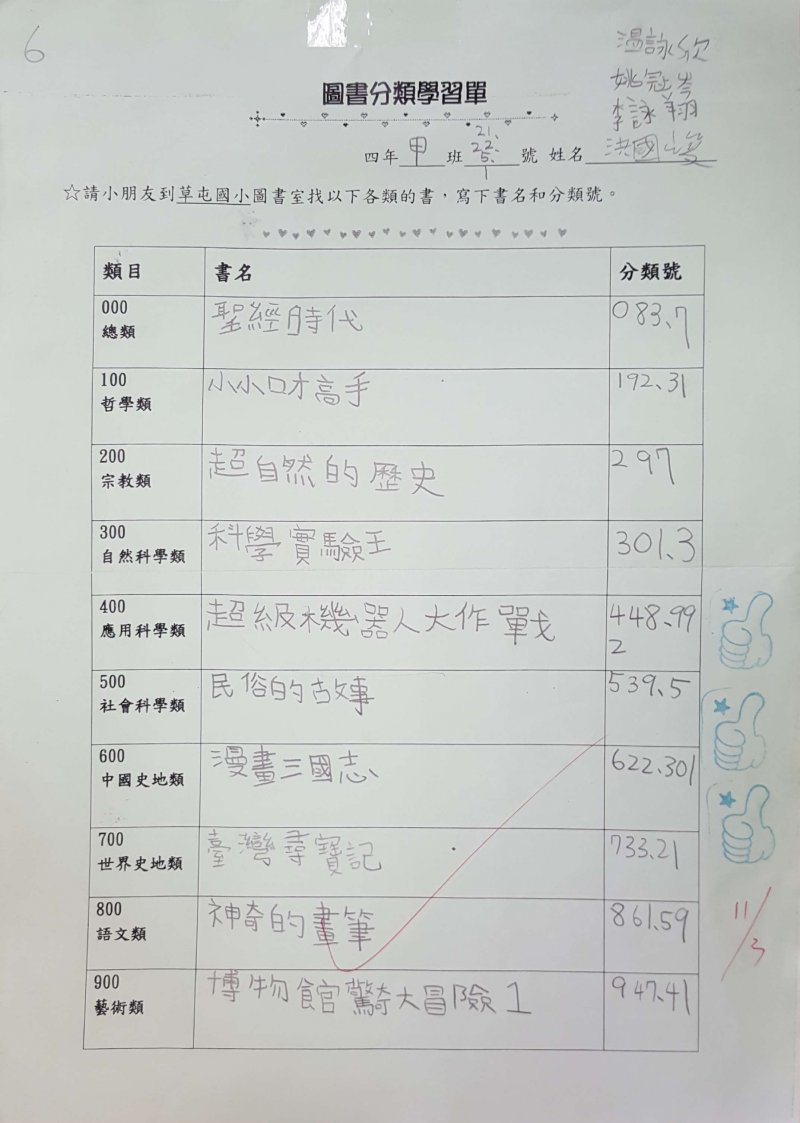 6
温詠欣
姚冠岑
李詠翔
圖書分類學習單
21.
22.
四年甲班5.號 姓名洪國峻
1
☆請小朋友到草屯國小圖書室找以下各類的書，寫下書名和分類號。
類目 書名 分類號
000 聖經時代 083.7
總類
100 小小口才高手 192.31
哲學類
200 超自然的歷史 297
宗教類
300 科學實驗王 301.3
自然科學類
400 超級機器人大作戰 448.99
應用科學類 2
500 民俗的故事 539.5
社會科學類
600 漫畫三國志 622.301
中國史地類
700 臺灣尋寶記 733.21
世界史地類
800 神奇的畫筆 861.59
語文類
900 博物館驚奇大冒險1 947.41
藝術類
11/3